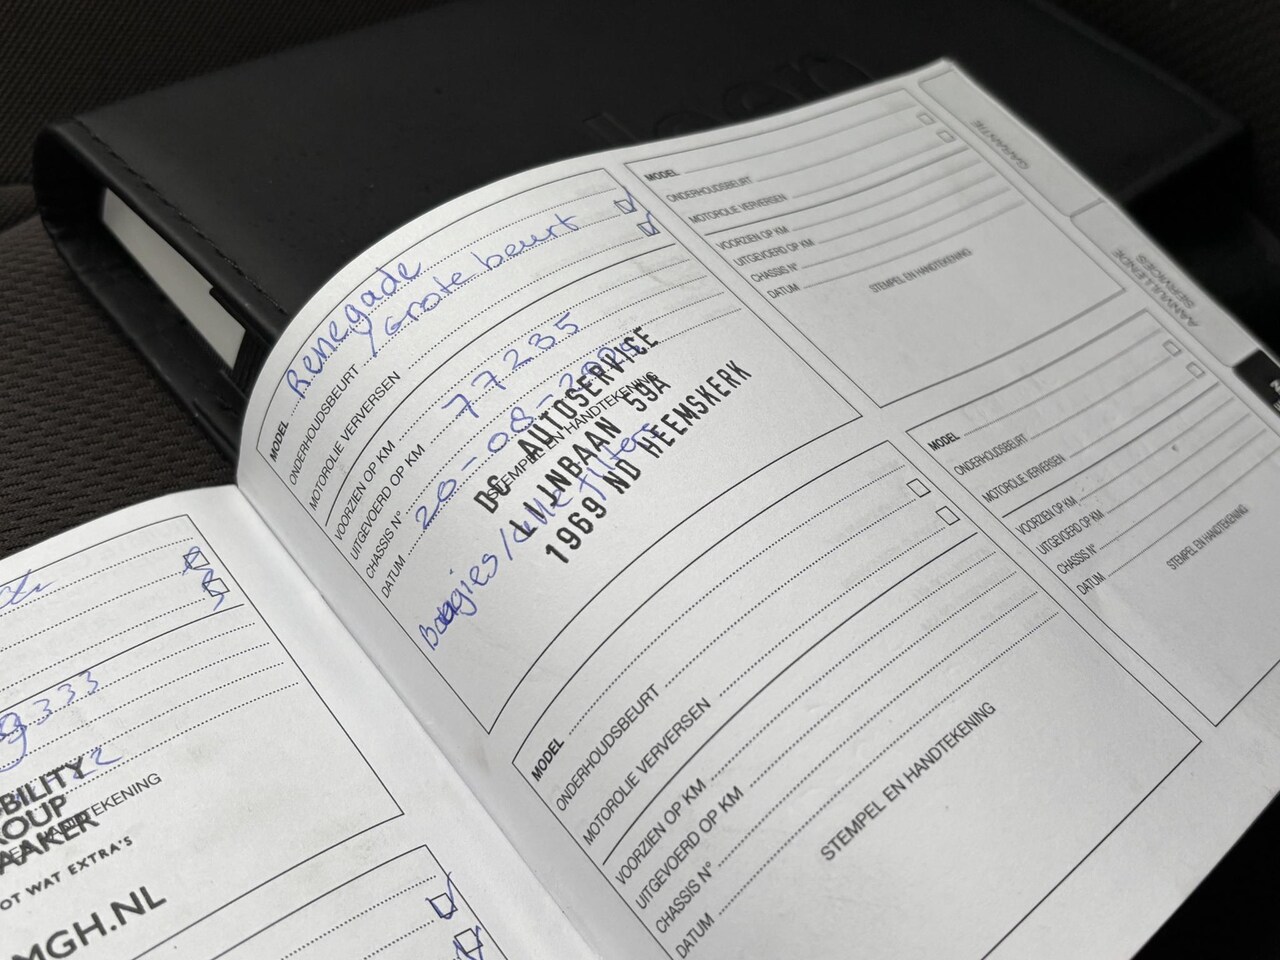 Jeep
9333
22
BILITY
ROUP
AAKER
TEKENING
OT WAT EXTRA'S
MGH.NL
MODEL Renegade
ONDERHOUDSBEURT Grote beurt
MOTOROLIE VERVERSEN
VOORZIEN OP KM
UITGEVOERD OP KM 77235
CHASSIS N°
DATUM 26-08-2024
STEMPEL EN HANDTEKENING
DC AUTOSERVICE
LIJNBAAN 59A
1969 ND HEEMSKERK
Bougies / alle filters
MODEL
ONDERHOUDSBEURT
MOTOROLIE VERVERSEN
VOORZIEN OP KM
UITGEVOERD OP KM
CHASSIS N°
DATUM
STEMPEL EN HANDTEKENING
MODEL
ONDERHOUDSBEURT
MOTOROLIE VERVERSEN
VOORZIEN OP KM
UITGEVOERD OP KM
CHASSIS N°
DATUM
STEMPEL EN HANDTEKENING
MODEL
ONDERHOUDSBEURT
MOTOROLIE VERVERSEN
VOORZIEN OP KM
UITGEVOERD OP KM
CHASSIS N°
DATUM
STEMPEL EN HANDTEKENING
GARANTIE
AANVULLENDE
SERVICES